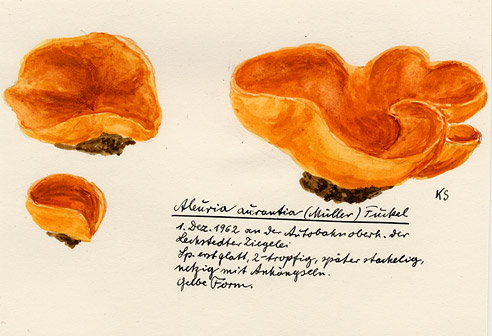 KS
Aleuria aurantia (Müller) Fuckel
1. Dez. 1962 an der Autobahn oberh. der
Leckstedter Ziegelei
Sp. erst glatt, 2-tropfig, später stachelig,
netzig mit Anhängseln.
Gelbe Form.